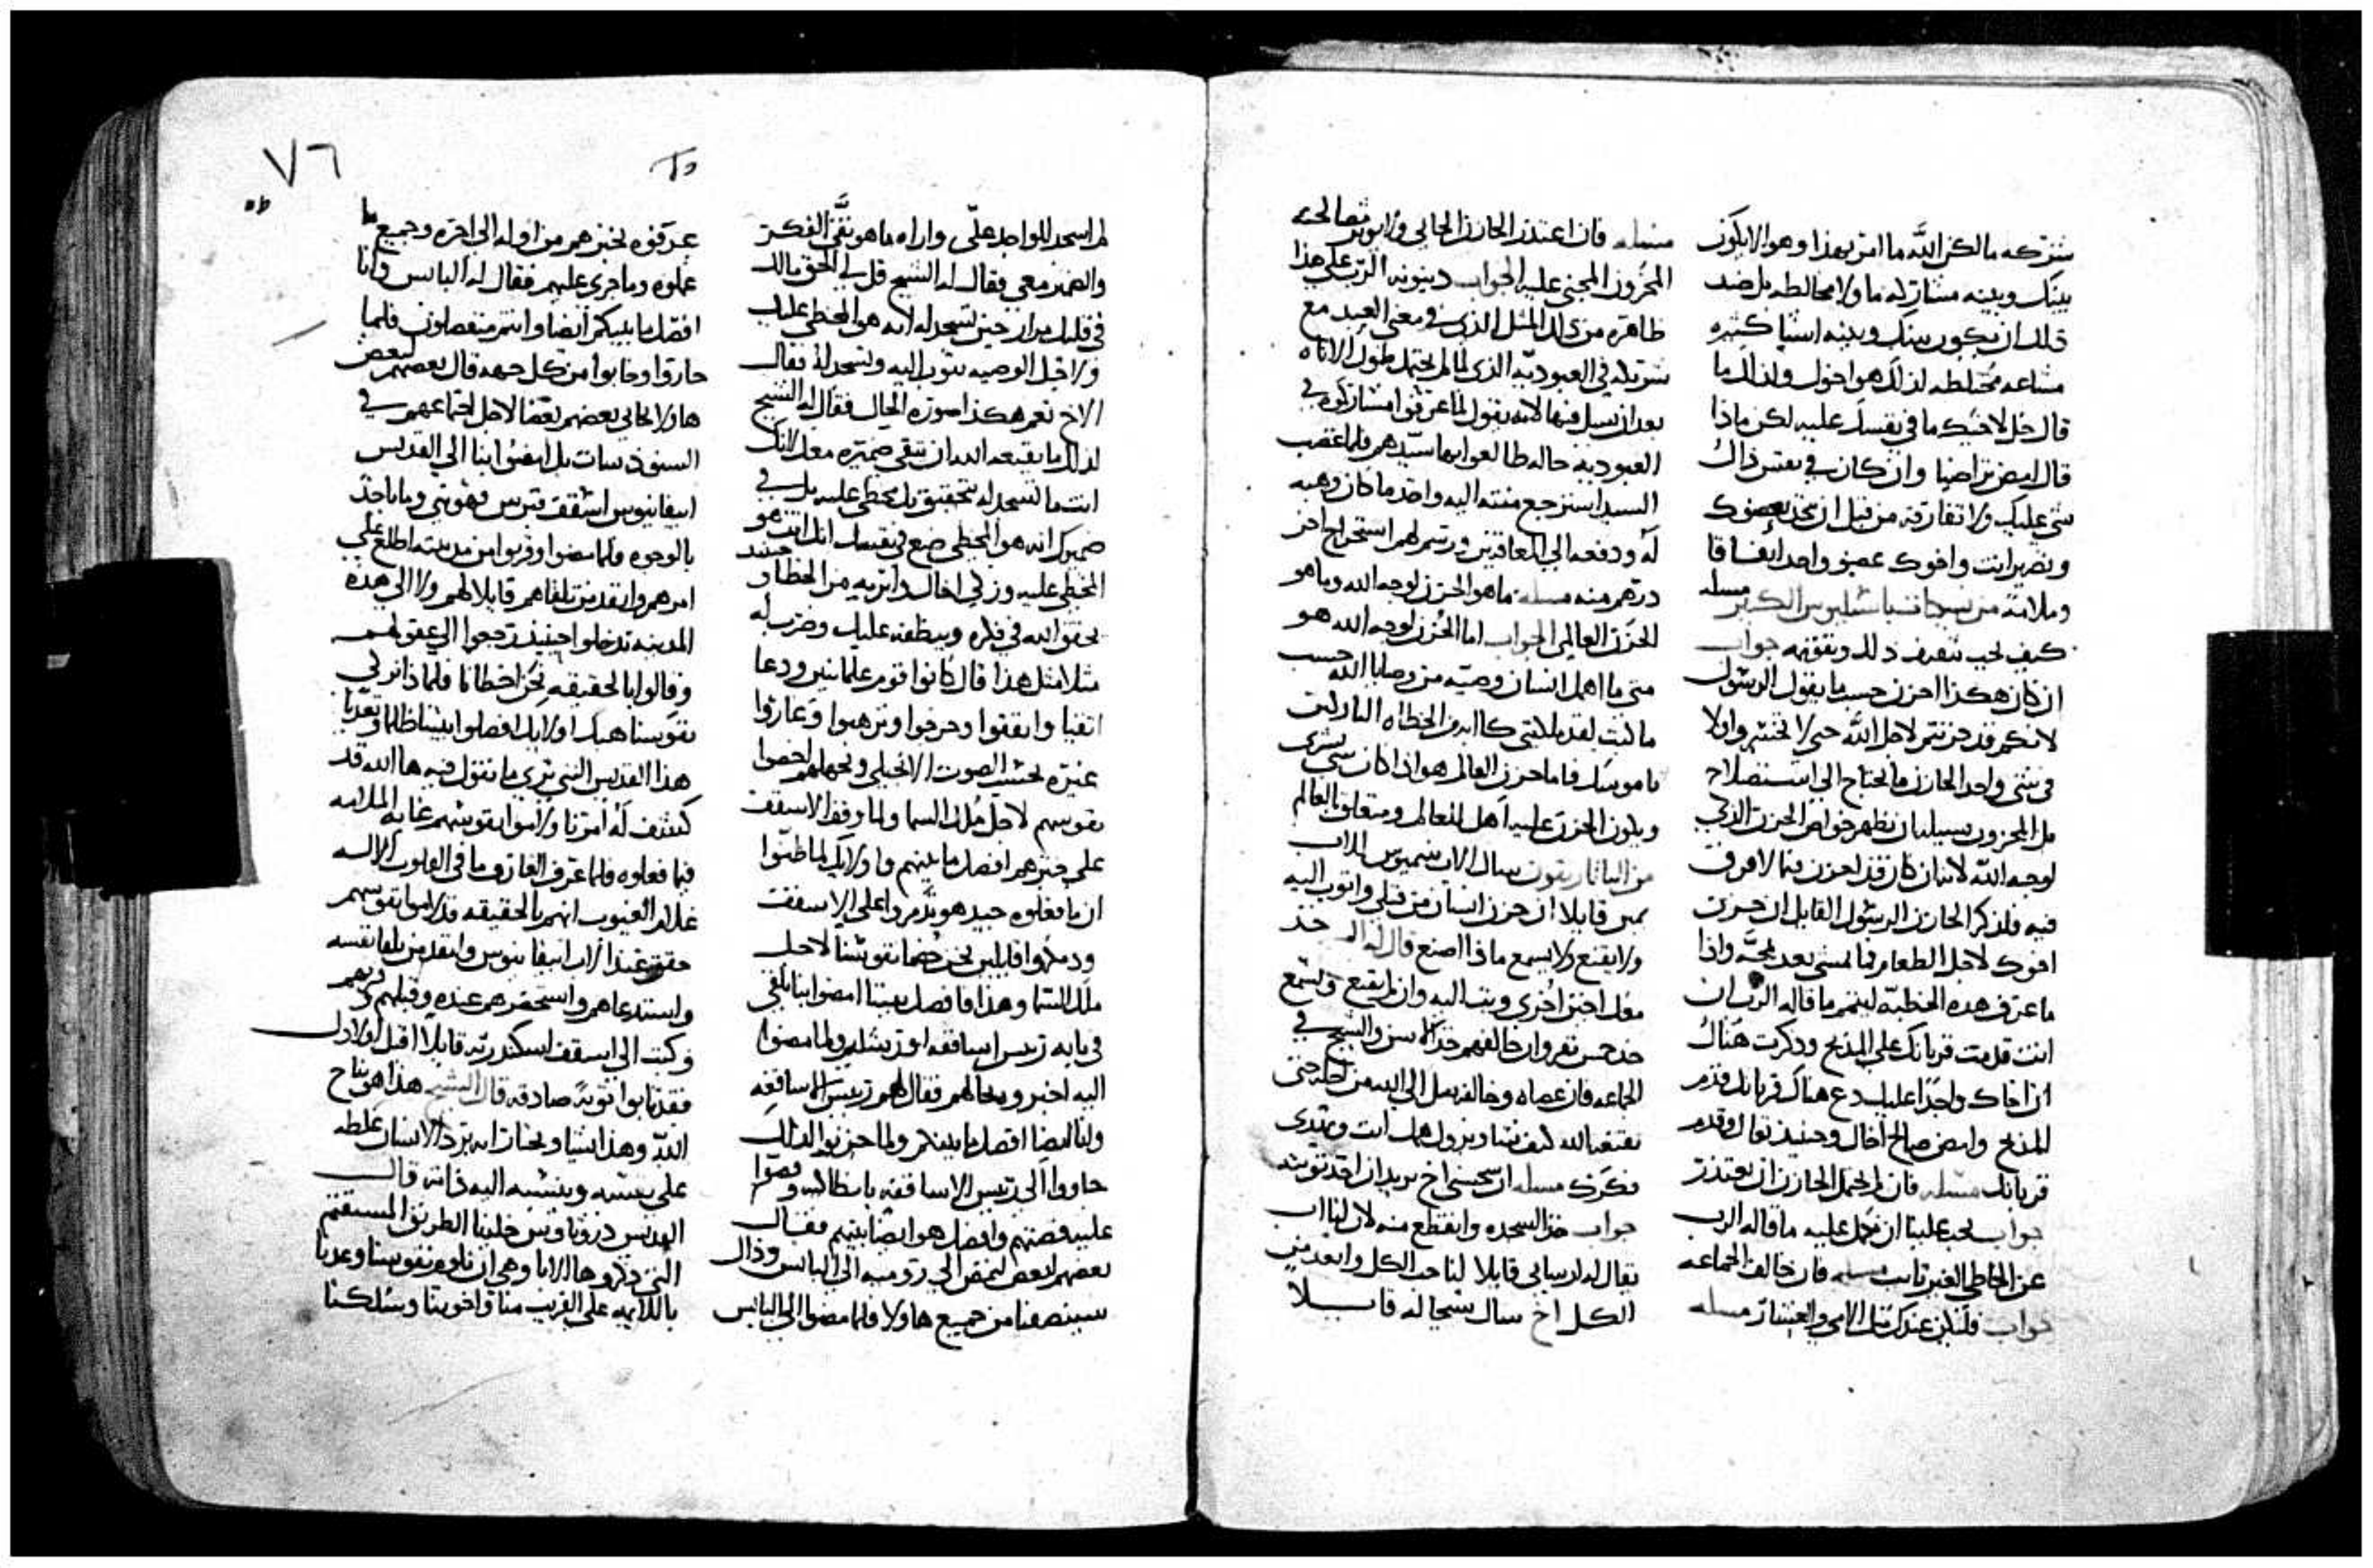 شركه مالكن الله ما امر بهذا وهو الا يكون
بينك وبينه مشاركه ما ولا مخالطه بل ضد
ذلك ان يكون بينك وبينه اشيا كثيره
مشاعه مختلطه لذلك هو اخوك ولذلك ما
قال خل لاخيك ما في نفسك عليه لكن ماذا
قال امض تراضيا وان كان في نفس ذاك
شي عليك ولا تفارقه من قبل ان تخذ بعضوك
وتصير انت واخوك عضو واحد ايضا قا
وملامة من باسيليوس الكبير مسله
كيف يجب نتعرف ذلك ونفقهه جواب
ان كان هكذا احزن حسب ما يقول الرسول
لانكم قد حزنتم لاجل الله حتى لا تخسروا ولا
في شي واحد الحازن ما يحتاج الى استصلاح
بل المحزون سبيله ان تظهر خواص الحزن الذي
لوجه الله لانه ان كان قد احزن فيما لا فرق
فيه فلذكر الحازن الرسول القايل ان حزن
اخوك لاجل الطعام فما تمشي بعد بمحبه واذا
ما عرف هذه الخطيه ليتمم ما قاله الرب ان
انت قدمت قربانك على المذبح وذكرت هناك
ان اخاك واجدا عليك دع هناك قربانك قدام
المذبح وامض صالح اخاك وحينيذ تعال وقدم
قربانك مسله فان لم يحتمل الحازن ان يعتذر
جواب يجب علينا ان نحمل عليه ما قاله الرب
عن الخاطي الغير تايب مسله فان خالف الجماعه
جواب فليكن عندك مثل الامي والعشار مسله
مسله فان اعتذر الحازن الجاني ولا يوثر مصالحته
المحزون المجني عليه الجواب دينونه الرب على هذا
ظاهره من ذلك المثل الذي في معنى العبد مع
شريكه في العبوديه الذي لما لم يحتمل طول الاناه
بعد ان يسل فيها لانه يقول لما عرفوا مشاركوه في
العبوديه حاله طالعوا بها سيدهم فلما غضب
السيد استرجع منته اليه واخذ ما كان وهبه
له ودفعه الى المعاقبين ورسم لهم استخراج اخر
درهم منه مسله ما هو الحزن لوجه الله وما هو
الحزن العالمي الجواب اما الحزن لوجه الله هو
متى ما اهمل انسان وصيه من وصايا الله حسب
فاما حزن العالم هو اذا كان شي بشري
ويكون الحزن عليه اهل للعالم ومتعلق بالعالم
قايلا ان حزن انسان من قبلي واتوب اليه
ولا يقنع ولا يسمع ماذا اصنع قال له الـ خذ
معك اخين اخرى وتب اليه وان لم يقنع ويسمع
خذ خمس نفر وان خالفهم خذ القس والشيخ في
الجماعه فان عصاه وخالفه
فكرك مسله ان سجسني اخ يريد ان اخذ توبته
جواب خذ السجده وانقطع منه لان لنا اب
يقال له ارسابي قايلا لنا حب الكل وابعد من
الكل اخ سال شيخا له قايلا
لم اسجد للواجد علي واراه ما هو نقي الفكر
والضمير معي فقال له الشيخ قل لي الحق مالك
في قلبك مرار حين تسجد له لانه هو المخطي عليك
ولاجل الوصيه تتوب اليه وتسجد له فقال
الاخ نعم هكذا صورة الحال فقال له الشيخ
لذلك ما يقنعه الله ان تنقي ضميره معك لانك
انت ما تسجد له بتحقيق بل مخطي عليه بل في
ضميرك انه هو المخطي ضع في نفسك انك انت هو
المخطي عليه وزكي اخاك وابريه من الخطا و حينيذ
يحقق الله في فكره وينظفه عليك وضرب له
مثلا مثل هذا قال كانوا قوم علمانيين ودعا
اتقيا واتفقوا وخرجوا وترهبوا وغاروا
غيره بحسب الصوت الانجيلي وبجهلهم اخصوا
نفوسهم لاجل ملك السما ولما وقف الاسقف
على خبرهم افصل ما بينهم واوليك لما ظنوا
ان ما فعلوه جيد هو تذمروا على الاسقف
ودمدموا قايلين نحن خصينا نفوسنا لاجل
ملك السما وهذا قد فصل بيننا امضوا بنا نلقى
اليه اخبروه بحالهم فقال لهم رييس الاساقفه
وانا ايضا افصل ما بينكم ولما حزنوا لذلك
جاووا الى رييس الاساقفه بانطاكيه وقصوا
عليه قصتهم وافصل هو ايضا بينهم فقال
بعضهم لبعض لنمض الى روميه الى الباس وذاك
سينصفنا من جميع هاولا فلما مضوا الى الباس
٧٦
عرفوه بخبرهم من اوله الى اخره وجميع ما
عملوه وما جرى عليهم فقال له الباس وانا
افصل ما بينكم ايضا وانتم منفصلون فلما
حاروا وخابوا من كل جهه قال بعضهم لبعض
هاولا يحابي بعضهم بعضا لاجل اجتماعهم في
السنودسات بل امضوا بنا الى القديس
ابيفانيوس اسقف قبرس فهو نبي وما ياخذ
بالوجوه فلما مضوا وقربوا من مدينته اطلع على
امرهم وانفذ من تلقاهم قايلا لهم ولا الى هذه
المدينه تدخلوا حينيذ رجعوا الى عقولهم
وقالوا بالحقيقه نحن اخطانا فلماذا نزكي
نفوسنا هبك اوليك افصلوا بيننا ظلما وتعديا
هذا القديس النبي ترى ما نقول فيه ها الله قد
كشف له امرنا ولاموا نفوسهم غاية الملامه
فيما فعلوه فلما عرف العارف ما في القلوب الاله
علام الغيوب انهم بالحقيقه قد لاموا نفوسهم
حقق عند الاب ابيفانيوس وانفذ من تلقا نفسه
واستدعاهم واستحضرهم عنده وقبلهم
وكتب الى اسقف اسكندريه قايلا اقبل اولادك
فقد تابوا توبة صادقه قال الشيخ هذا هو نتاج
الله وهذا يشا ويختار انه يرد الانسان غلطه
على نفسه وينسبه اليه ذاته قال
القديس دروتاوس خلينا الطريق المستقيم
التي ذكروها الابا وهي ان نلوم نفوسنا وعدنا
باللايمه على القريب منا واخوتنا وسلكنا